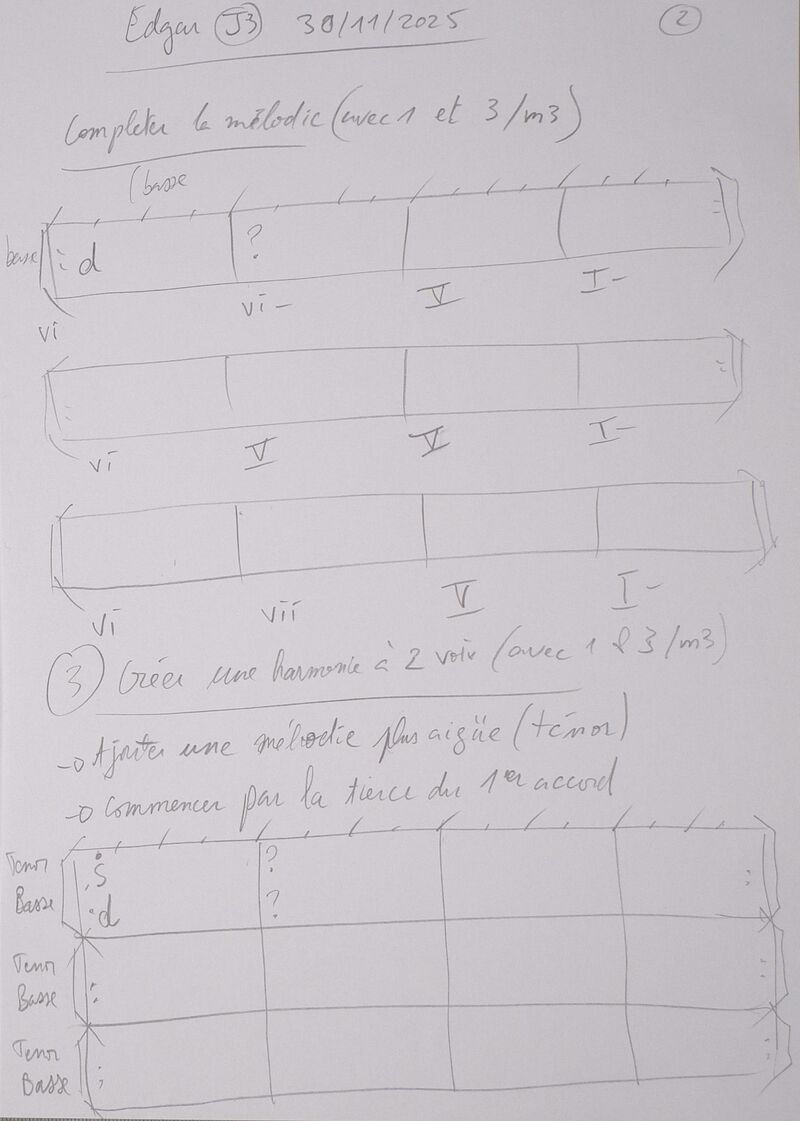 Edgar J3 30/11/2025
2
Completer la mélodie (avec 1 et 3/m3)
(basse
basse d ?
vi vi- V I-
vi V V I-
vi vii V I-
3 Créer une harmonie à 2 voix (avec 1 & 3/m3)
→ Ajouter une mélodie plus aigüe (ténor)
→ Commencer par la tierce du 1er accord
Tenor s ?
Basse d ?
Tenor
Basse
Tenor
Basse